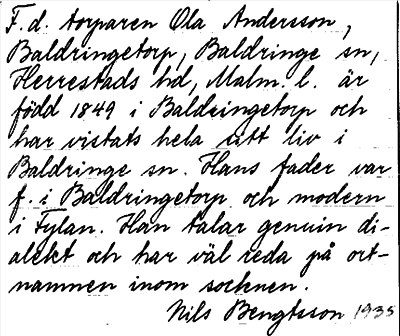 F. d. torparen Ola Andersson,
Baldringetorp, Baldringe sn,
Herrestads hd, Malm. l. är
född 1849 i Baldringetorp och
har vistats hela sitt liv i
Baldringe sn. Hans fader var
f. i Baldringetorp och modern
i Fylan. Han talar genuin di-
alekt och har väl reda på ort-
namnen inom socknen.
Nils Bengtsson 1935